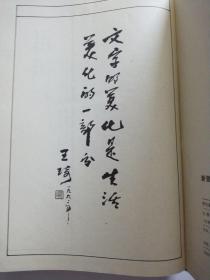 文字的美化是生活
美化的一部分
王琦
一九八六年